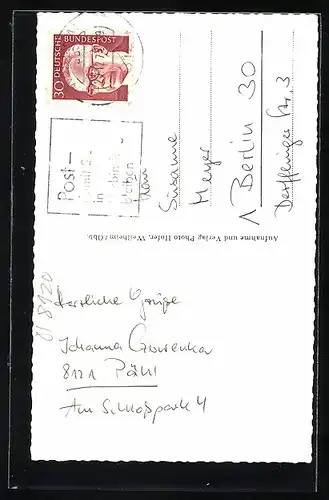 30 DEUTSCHE BUNDESPOST
Post-
in
Frau
Susanne
Meyer
1 Berlin 30
Derfflinger Str. 3
Aufnahme und Verlag Photo Hofer, Weilheim/Obb.
Herzliche Grüße
Johanna
8121 Pähl
Am Schloßpark 4